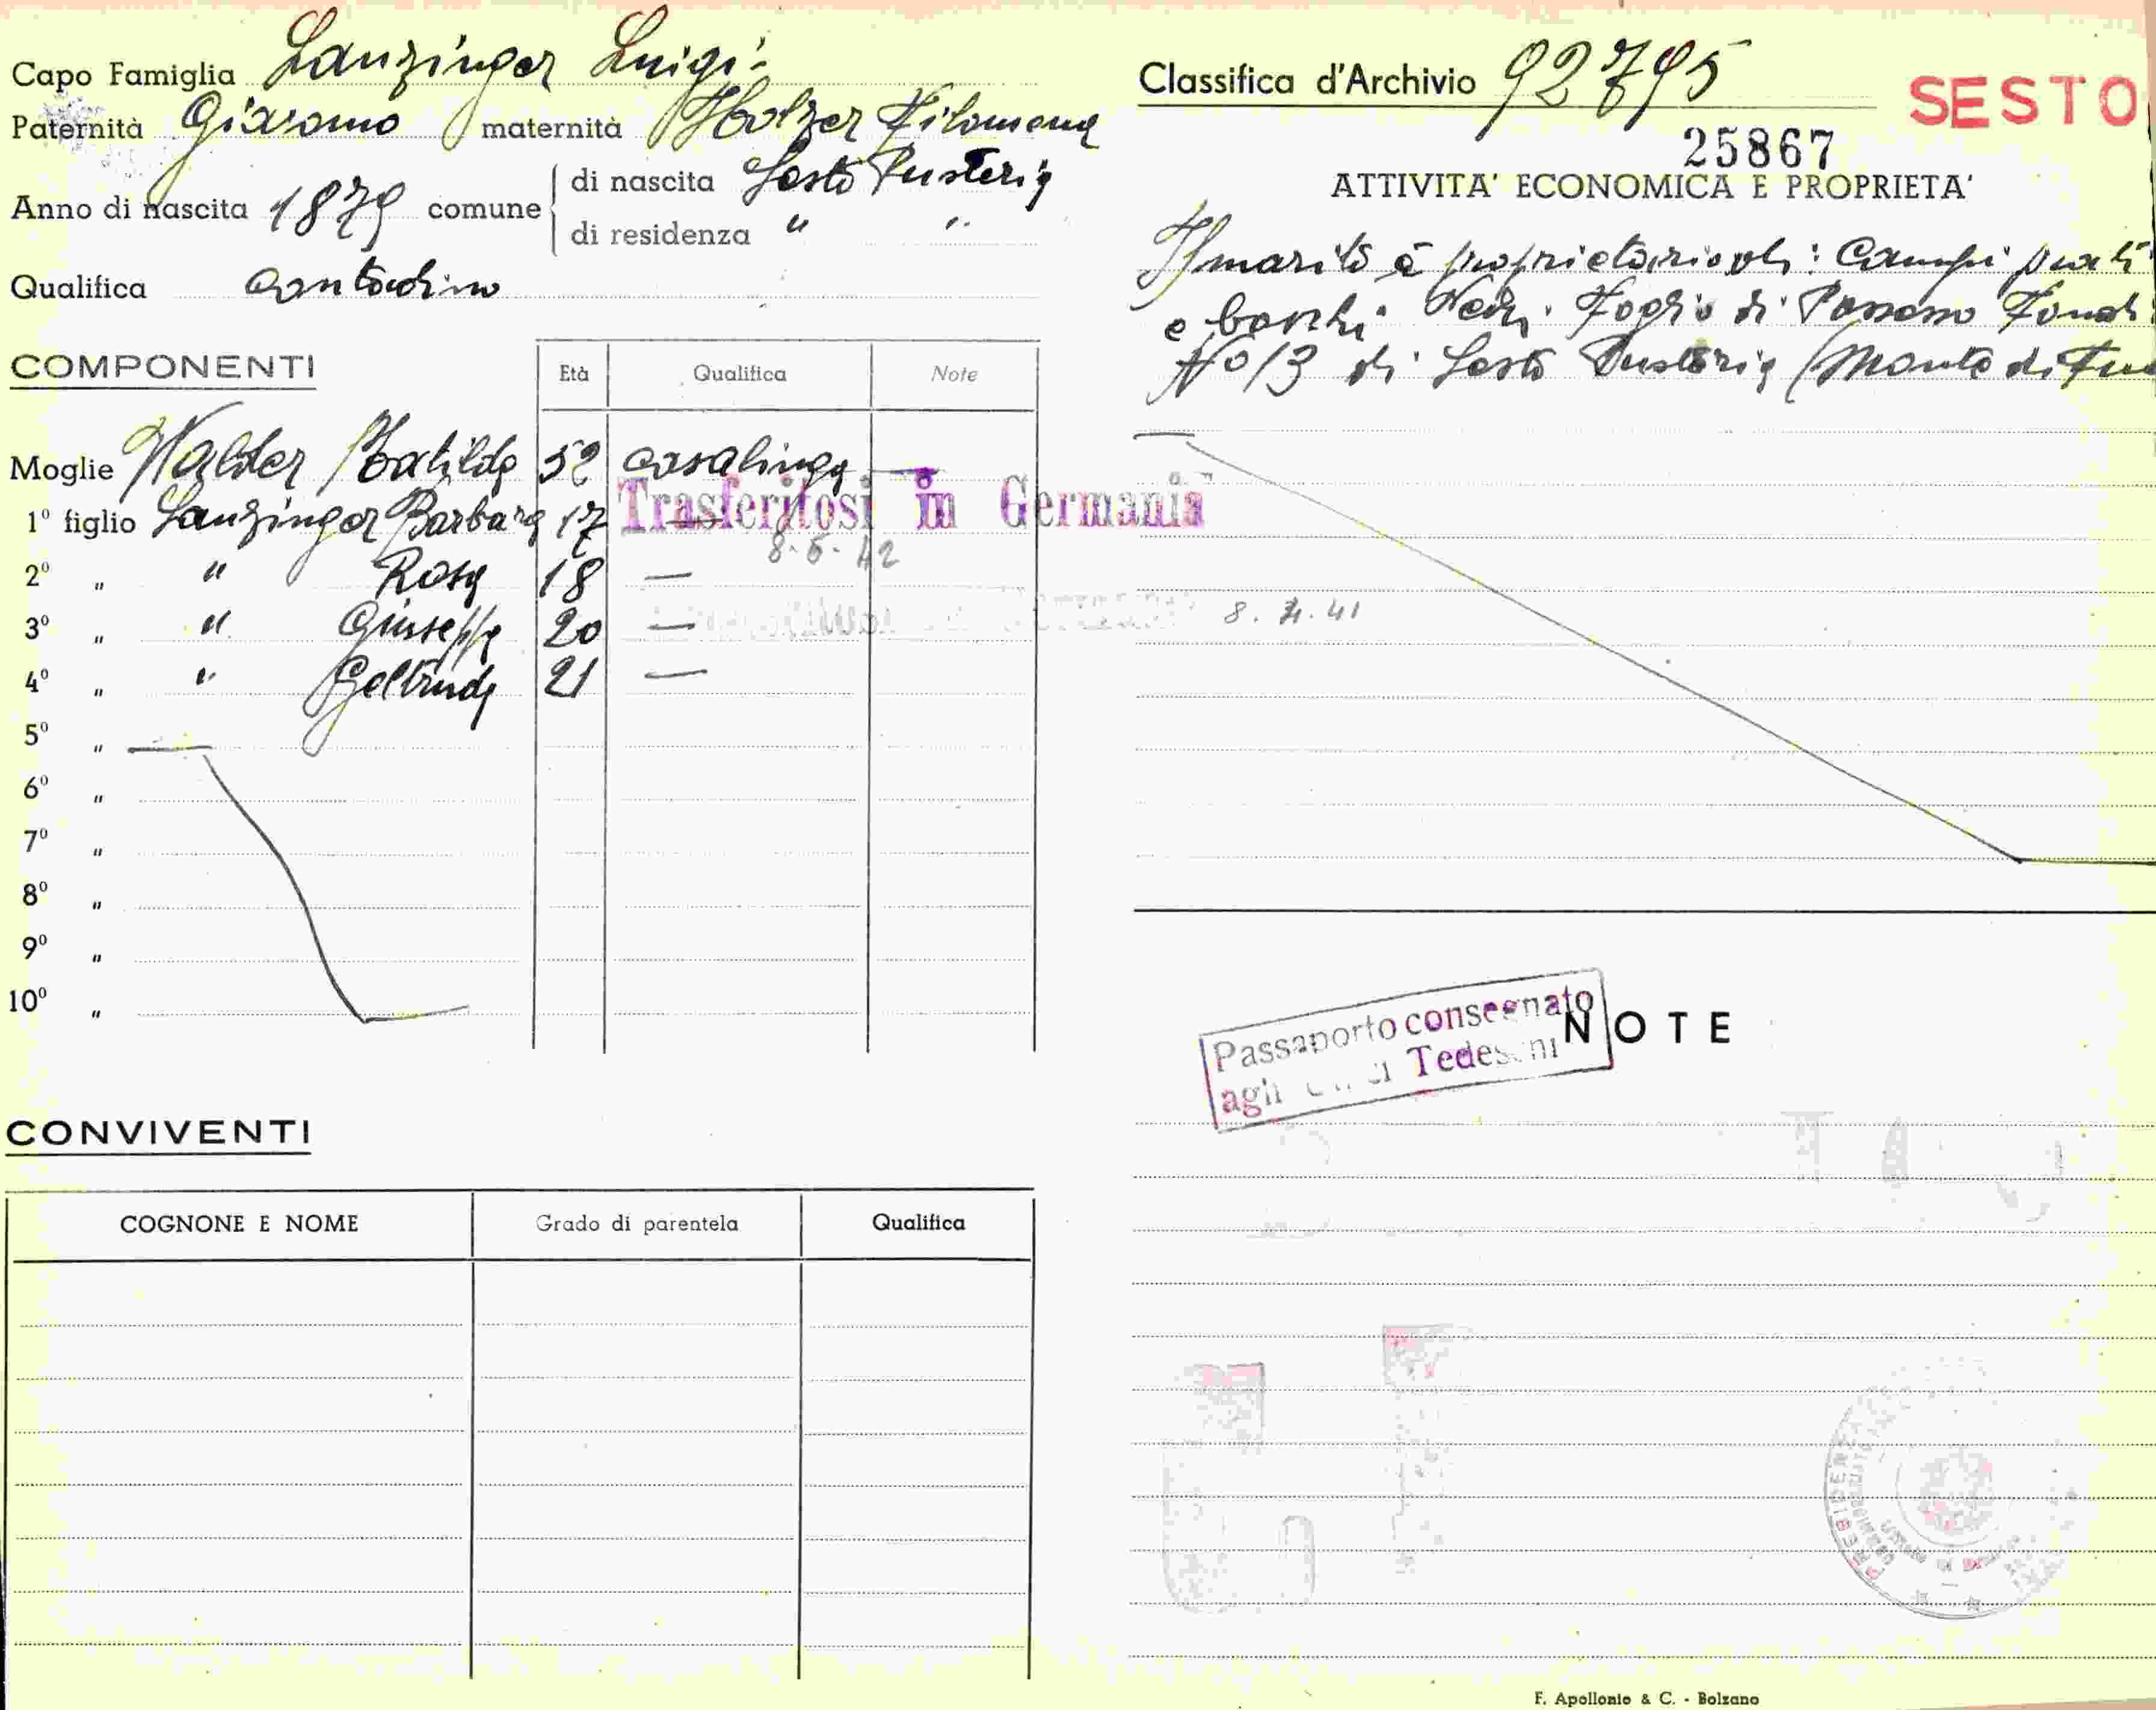 Capo Famiglia Lanzinger Luigi
Paternità Giacomo maternità Holzer Filomena
Anno di nascita 1879 comune di nascita Sesto Pusteria
di residenza " "
Qualifica contadino
COMPONENTI Età Qualifica Note
Moglie Walder Matilde 52 casalinga —
1º figlio Lanzinger Barbara 17 —
Trasferitosi in Germania
8.5.42
2º " " Rosa 18 —
3º " " Giuseppe 20 — 8.4.41
4º " " Geltrude 21 —
5º "
6º "
7º "
8º "
9º "
10º "
CONVIVENTI
COGNONE E NOME Grado di parentela Qualifica
Classifica d'Archivio 92795
SESTO
25867
ATTIVITA' ECONOMICA E PROPRIETA'
Il marito è proprietario di: Campi prati
e boschi Vedi Foglio di Possesso Fond.
No 13 di Sesto Pusteria (Monte di
Passaporto consegnato
agli Tedeschi
NOTE
F. Apollonio & C. - Bolzano